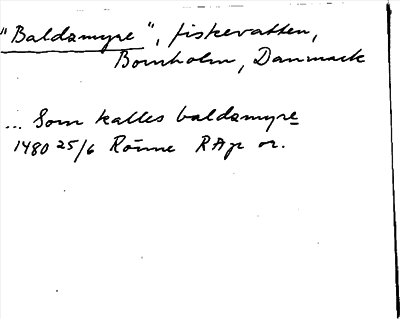 "Baldsmyre", fiskevatten,
Bornholm, Danmark
... Som kalles baldzmyre
1480 25/6 Rönne RAp or.